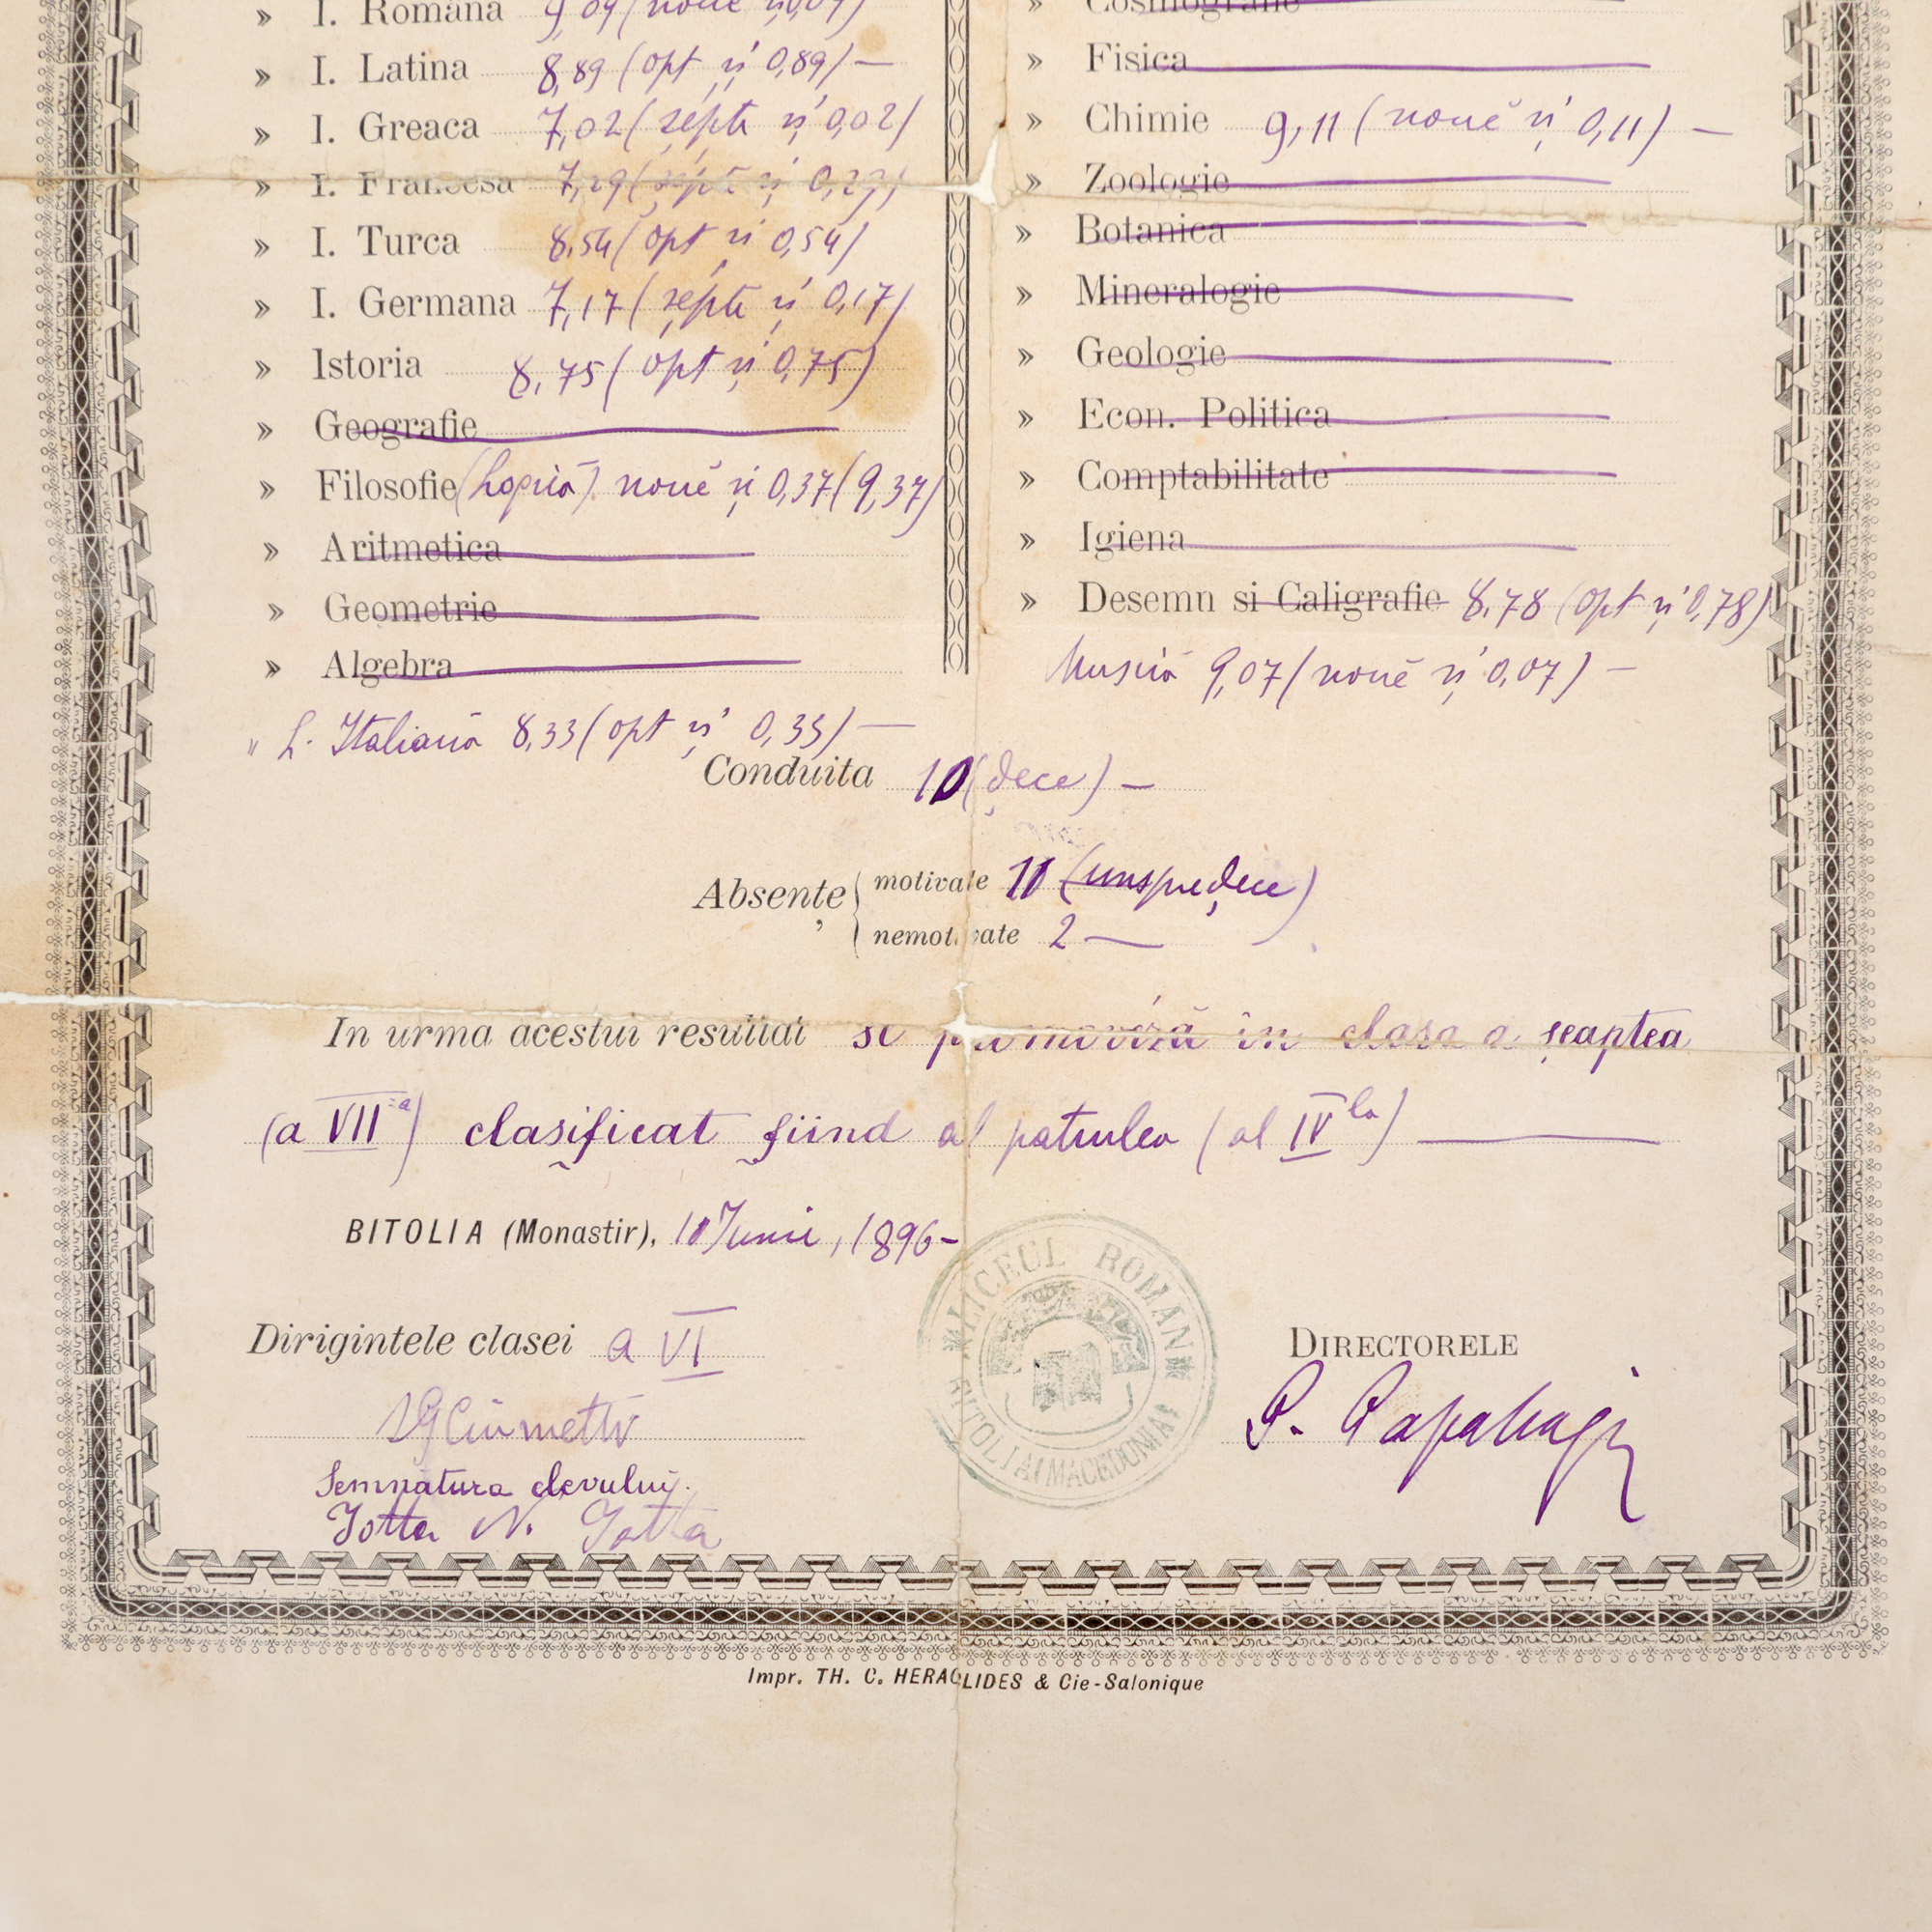 » I. Română 9,09 (nouĕ și 0,09)
» I. Latina 8,89 (opt și 0,89) —
» I. Greaca 7,02 (șépte și 0,02)
» I. Francesa 7,29 (șépte și 0,29)
» I. Turca 8,54 (opt și 0,54)
» I. Germana 7,17 (șépte și 0,17)
» Istoria 8,75 (opt și 0,75)
» Geografie
» Filosofie (Logică) nouĕ și 0,37 (9,37)
» Aritmetica
» Geometrie
» Algebra
" L. Italiană 8,33 (opt și 0,33) —
» Cosmografie
» Fisica
» Chimie 9,11 (nouĕ și 0,11) —
» Zoologie
» Botanica
» Mineralogie
» Geologie
» Econ. Politica
» Comptabilitate
» Igiena
» Desemn si Caligrafie 8,78 (opt și 0,78)
Musică 9,07 (nouĕ și 0,07) —
Conduita 10 (dece) —
Absențe motivate 11 (unspredece)
nemotivate 2 —
In urma acestui resultat se promovéză in clasa a șeaptea
(a VII-a) clasificat fiind al patrulea (al IV lea) —
BITOLIA (Monastir), 10 Iunie, 1896 —
Dirigintele clasei a VI
DIRECTORELE
P. Papahagi
Semnătura elevului.
Iotta N. Iotta
LICEUL ROMAN
BITOLIA (MACEDONIA)
Impr. TH. C. HERACLIDES & Cie-Salonique